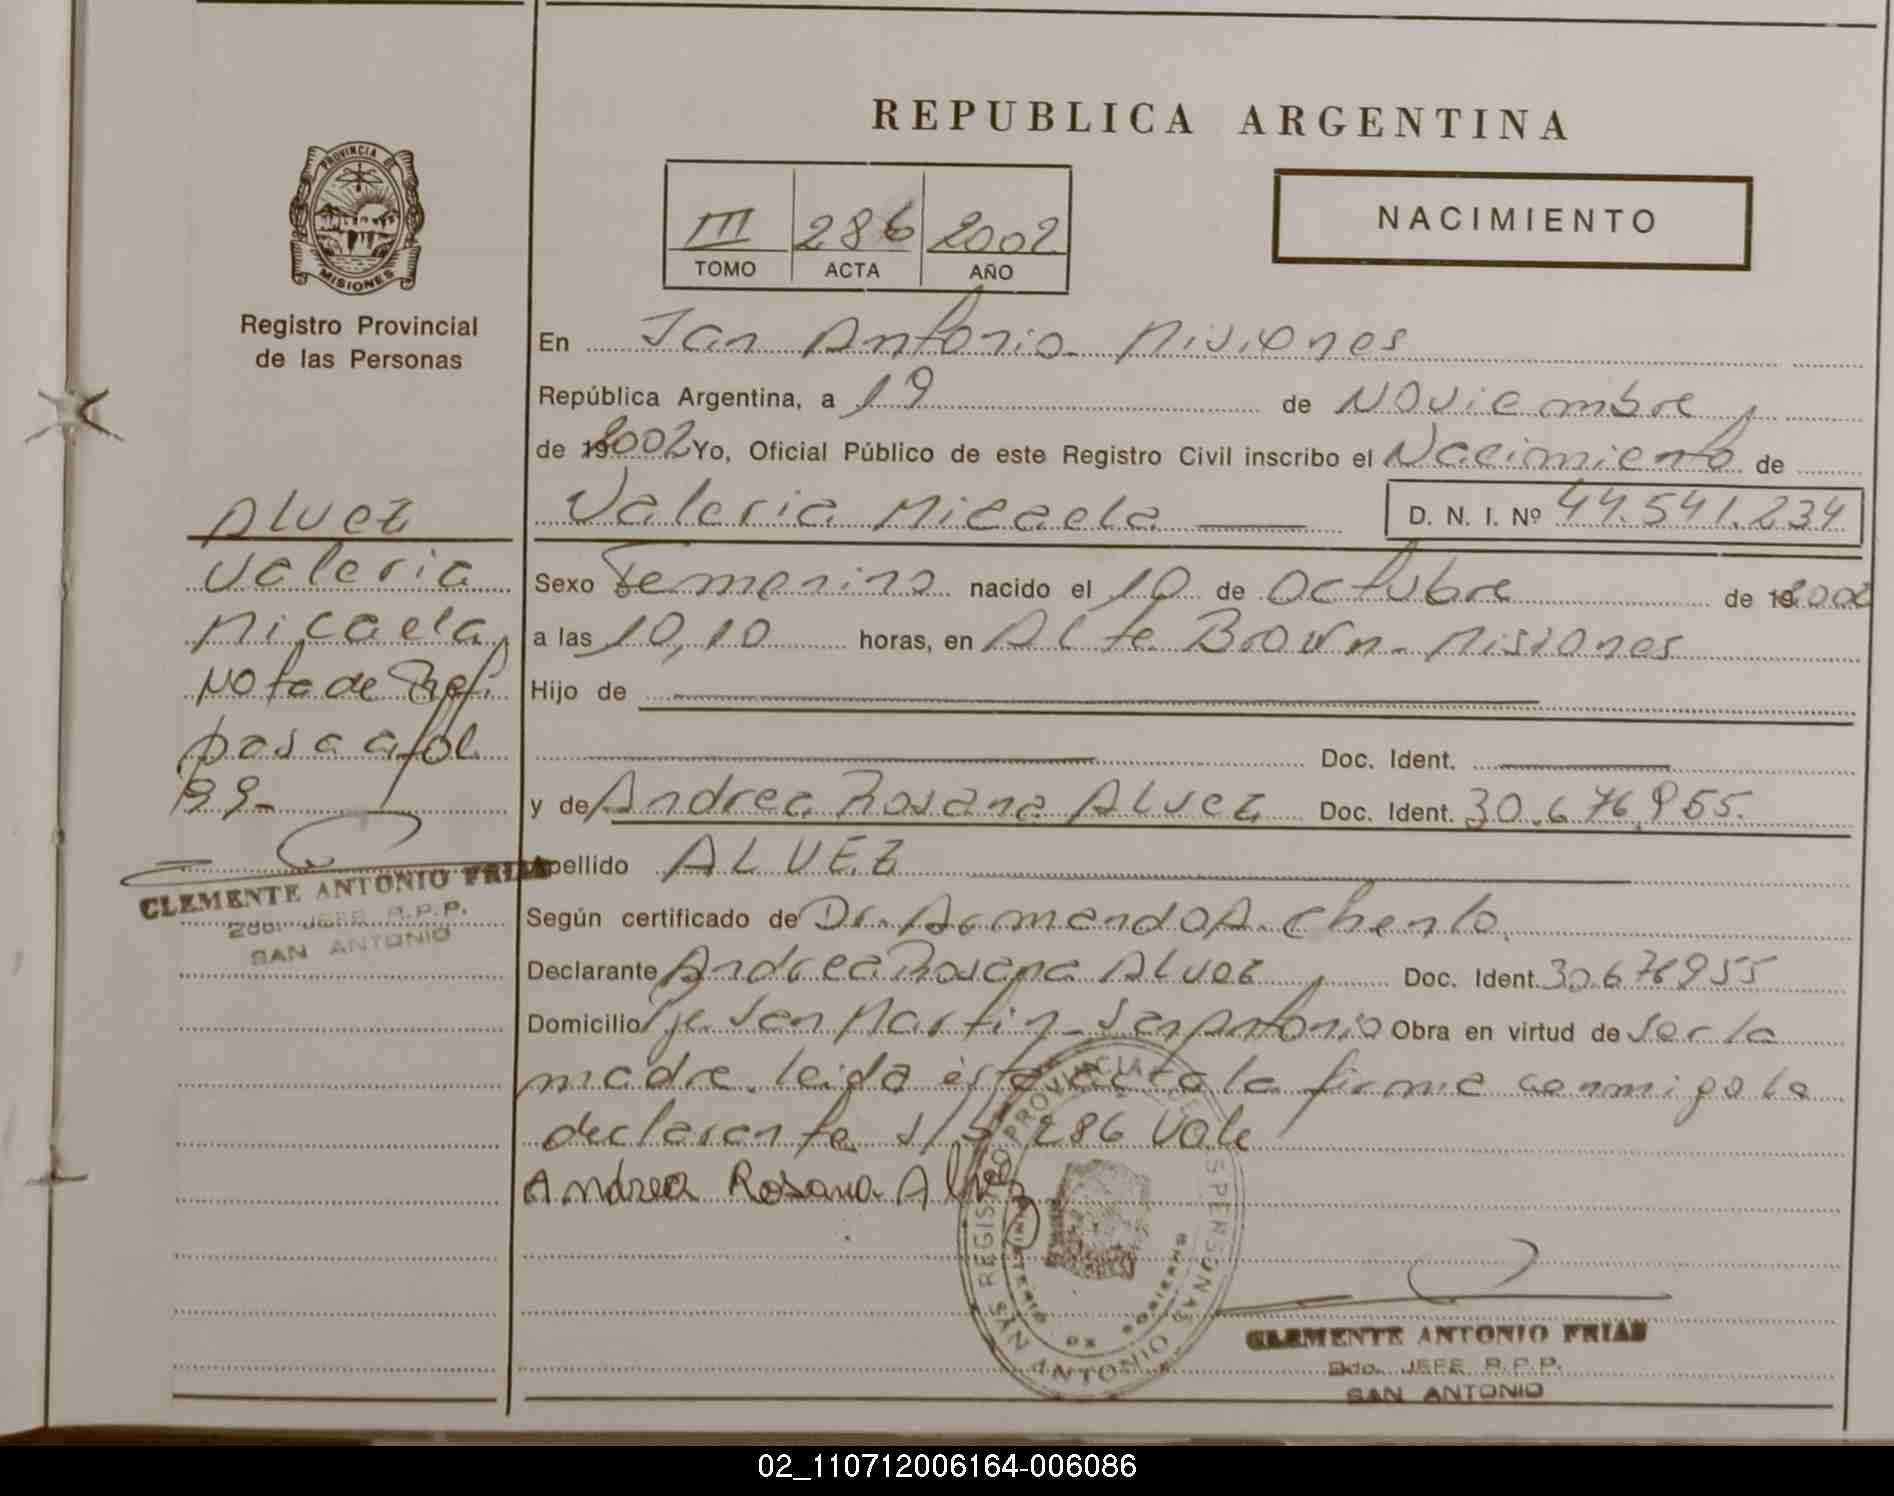 REPUBLICA ARGENTINA
PROVINCIA DE
MISIONES
Registro Provincial
de las Personas
III 286 2002
TOMO ACTA AÑO
NACIMIENTO
En San Antonio - Misiones
República Argentina, a 19 de Noviembre
de 192002 Yo, Oficial Público de este Registro Civil inscribo el Nacimiento de
Valeria Micaela D. N. I. Nº 44.541.234
Sexo Femenino nacido el 10 de Octubre de 192002
a las 10,10 horas, en Alte Brown - Misiones
Hijo de
Doc. Ident.
y de Andrea Rosana Alvez Doc. Ident. 30.676.955.
Apellido ALVEZ
Según certificado de Dr. Armando A. Chenlo.
Declarante Andrea Rosana Alvez Doc. Ident. 30.676955
Domicilio Pje San Martin - San Antonio Obra en virtud de ser la
madre. leida esta acta la firma conmigo la
declarante s/ 286 Vale
Andrea Rosana Alvez
ALVEZ
Valeria
Micaela
Nota de Ref.
pasa a fol
99-
CLEMENTE ANTONIO FRIAS
2do. JEFE R.P.P.
SAN ANTONIO
PROVINCIAL DE LAS PERSONAS
REGISTRO
MINISTERIO DE GOBIERNO
SAN ANTONIO
CLEMENTE ANTONIO FRIAS
2do. JEFE R.P.P.
SAN ANTONIO
02_110712006164-006086